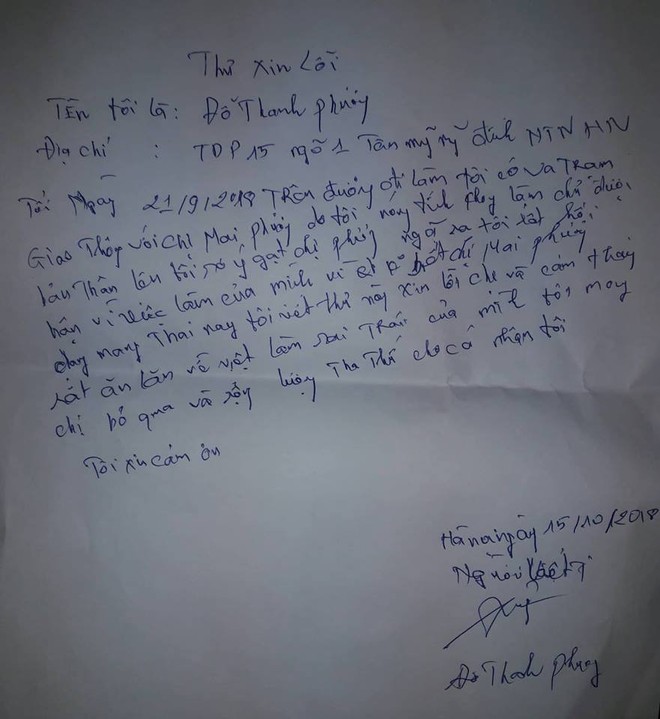 Thư xin Lỗi
Tên tôi là: Đỗ Thanh Phượng
Địa chỉ : TDP 15 ngõ 1 Tân mỹ mỹ đình NTN HN
Tôi Ngày 21/9/2018 Trên đường đi làm tôi có va Trạm
Giao Thông với chị Mai phượng do tôi nóng tính không làm chủ được
bản Thân lên tôi sơ ý gạt chị phượng ngã ra tôi rất hối
hận vì việc làm của mình vì biết chị Mai phượng
đang mang Thai nay tôi viết thư này xin lỗi chị và cảm thấy
rất ăn lăn về việc làm sai Trái của mình tôi mong
chị bỏ qua và rộng lượng Tha Thứ cho cá nhận tôi
Tôi xin cảm ơn
Hà nội ngày 15/10/2018
Người viết
Đỗ Thanh Phượng